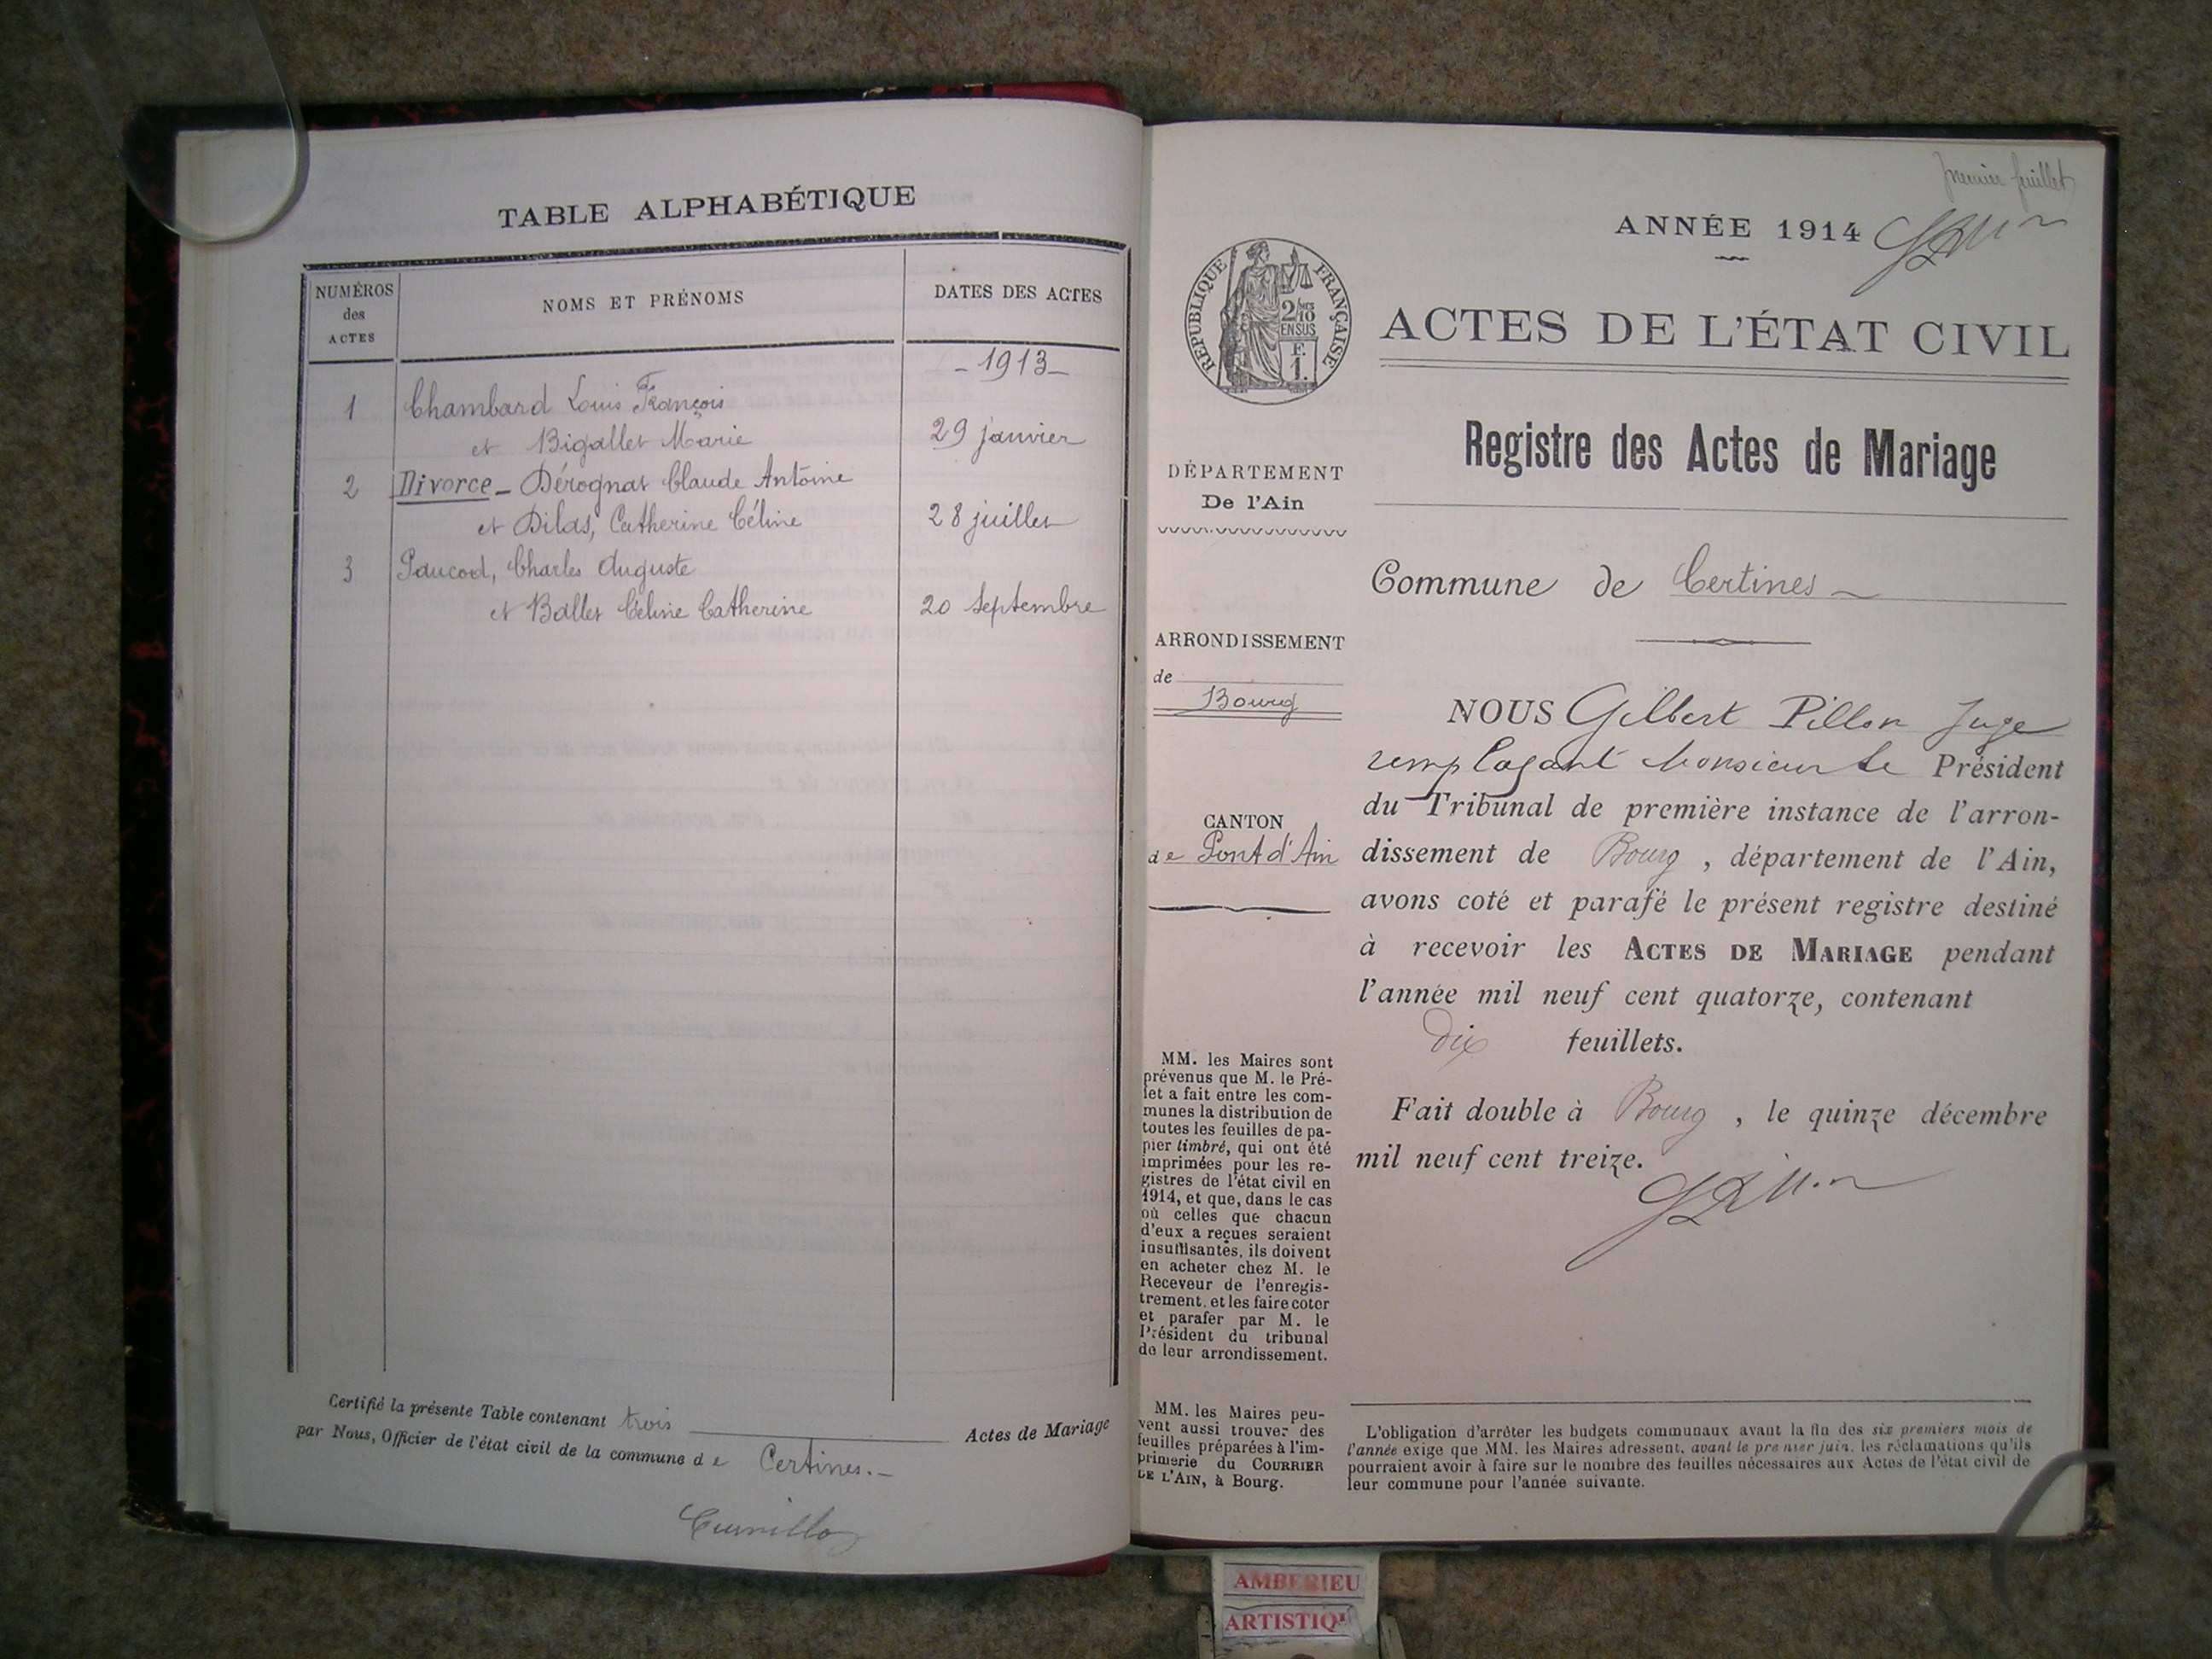 TABLE ALPHABÉTIQUE
NUMÉROS
des
ACTES
NOMS ET PRÉNOMS
DATES DES ACTES
- 1913 -
1 Chambard Louis François
et Bigallet Marie 29 janvier
2 Divorce - Dérognat Claude Antoine
et Dilas, Catherine Céline 28 juillet
3 Paucod, Charles Auguste
et Ballet Céline Catherine 20 Septembre
Certifié la présente Table contenant trois Actes de Mariage
par Nous, Officier de l'état civil de la commune de Certines. -
premier feuillet
ANNÉE 1914
RÉPUBLIQUE FRANÇAISE
2/10MES
EN SUS
F.
1.
ACTES DE L'ÉTAT CIVIL
Registre des Actes de Mariage
DÉPARTEMENT
De l'Ain
Commune de Certines
ARRONDISSEMENT
de
Bourg
CANTON
de Pont d'Ain
NOUS Gilbert Pillon Juge
remplaçant Monsieur le Président
du Tribunal de première instance de l'arron-
dissement de Bourg, département de l'Ain,
avons coté et parafé le présent registre destiné
à recevoir les ACTES DE MARIAGE pendant
l'année mil neuf cent quatorze, contenant
dix feuillets.
Fait double à Bourg, le quinze décembre
mil neuf cent treize.
MM. les Maires sont
prévenus que M. le Pré-
fet a fait entre les com-
munes la distribution de
toutes les feuilles de pa-
pier timbré, qui ont été
imprimées pour les re-
gistres de l'état civil en
1914, et que, dans le cas
où celles que chacun
d'eux a reçues seraient
insuffisantes, ils doivent
en acheter chez M. le
Receveur de l'enregis-
trement, et les faire coter
et parafer par M. le
Président du tribunal
de leur arrondissement.
MM. les Maires peu-
vent aussi trouver des
feuilles préparées à l'im-
primerie du COURRIER
DE L'AIN, à Bourg.
L'obligation d'arrêter les budgets communaux avant la fin des six premiers mois de
l'année exige que MM. les Maires adressent, avant le premier juin, les réclamations qu'ils
pourraient avoir à faire sur le nombre des feuilles nécessaires aux Actes de l'état civil de
leur commune pour l'année suivante.
AMBERIEU
ARTISTIQU